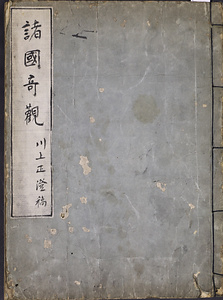 諸國奇觀
川上正澄稿